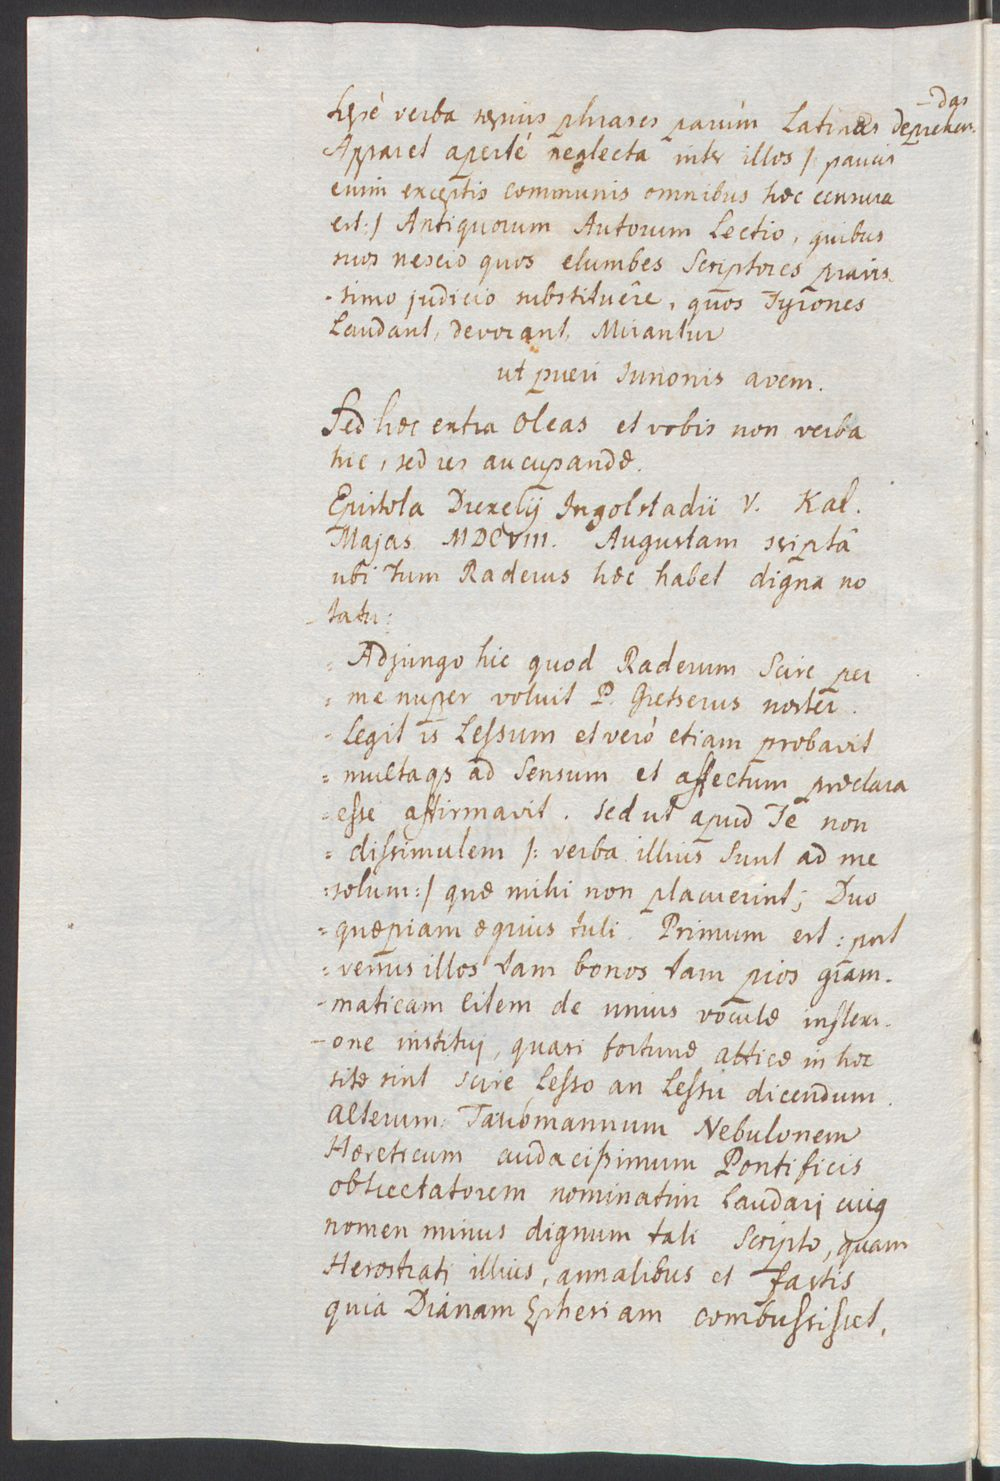 sæpè verba sæpius phrases parùm Latinas deprehen-
-das
Apparet apertè neglecta inter illos /: paucis
enim exceptis communis omnibus hæc censura
est:/ Antiquorum Autorum Lectio, quibus
suos nescio quos elumbes Scriptores pravis-
-simo judicio substituêre, quos Tyrones
Laudant, devorant, Mirantur
ut pueri Junonis avem.
Sed hæc extra Oleas et vobis non verba
hic, sed res aucupandæ.
Epistola Drexelij Ingolstadii V. Kal.
Majas MDCVIII. Augustam scriptâ
ubi tum Raderus hæc habet digna no
-tatu:
= Adjungo hic quod Raderum Scire per
= me nuper voluit P. Gretserus noster.
= Legit is Lessum et verò etiam probavit
= multaqs ad Sensum et affectum præclara
= esse affirmavit. sed ut apud Te non
= dissimulem /: verba illius Sunt ad me
= solum:/ quæ mihi non placuerint; Duo
= quæpiam ægrius tuli. Primum est: post
= versus illos tam bonos tam pios gram-
-maticam litem de unius voculæ inflexi-
-one institui, quasi fortunæ atticæ in hoc
sitæ sint scire Lesso an Lessu dicendum.
Alterum: Taubmannum Nebulonem
Hæreticum audacissimum Pontificis
obtrectatorem nominatim Laudari cuiq
nomen minus dignum tali Scripto, quam
Herostrati illius, annalibus et fastis
quia Dianam Ephesiam combussisset.